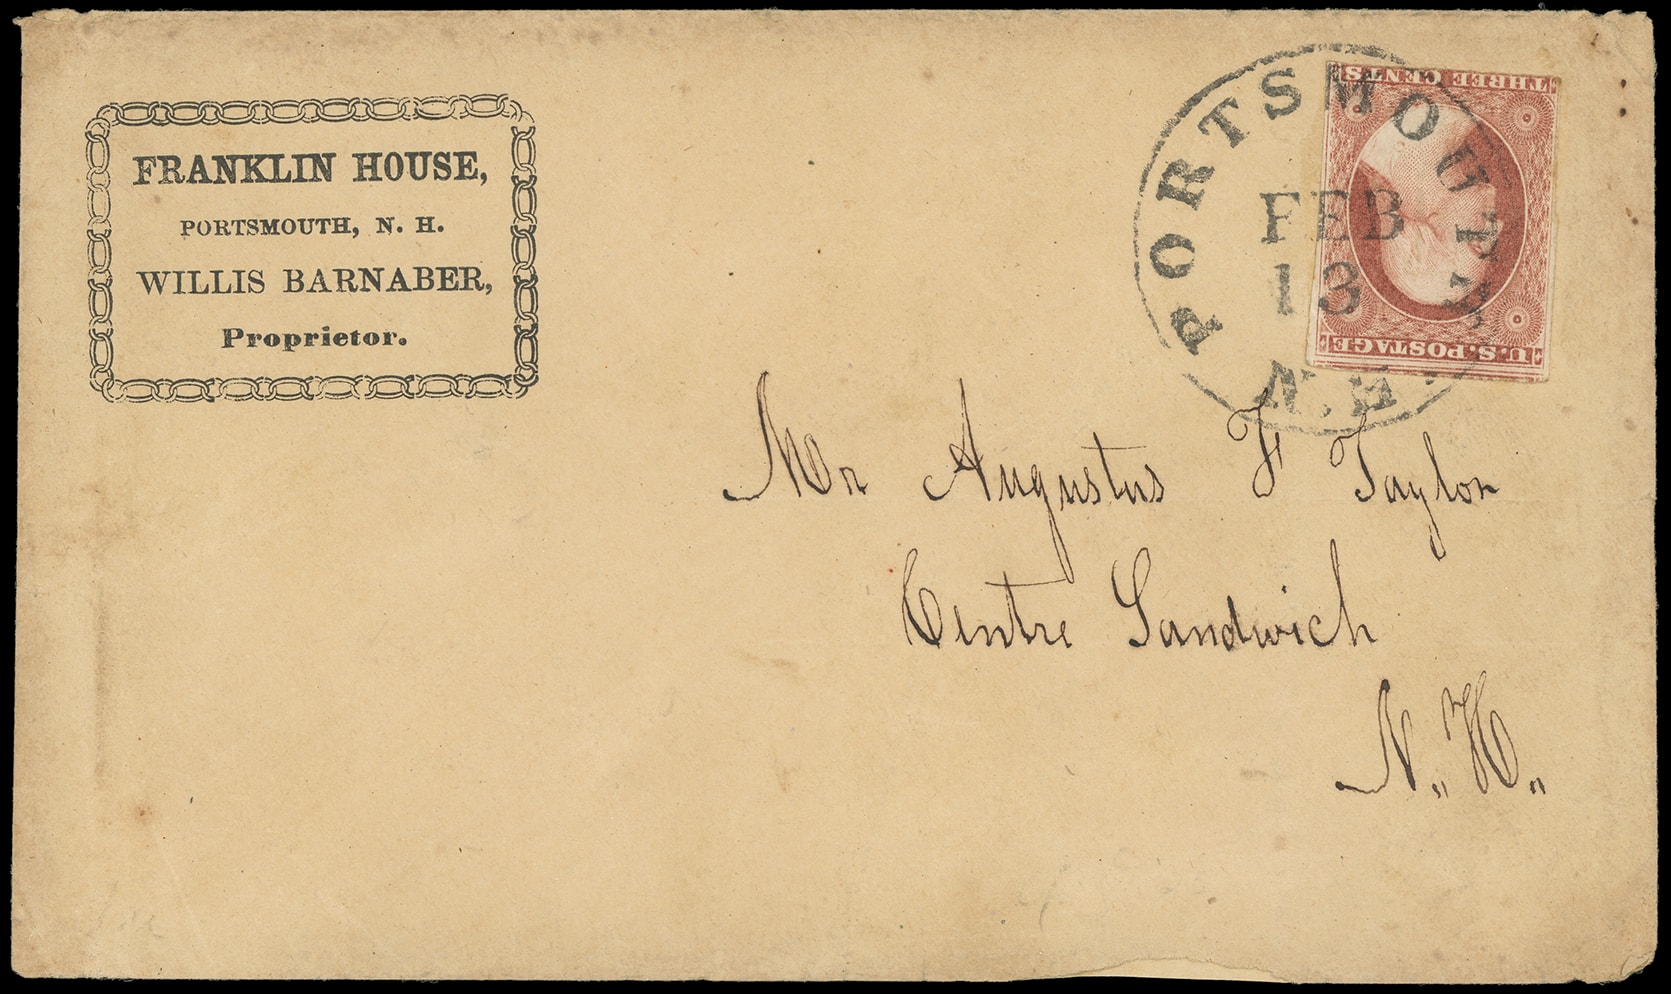 FRANKLIN HOUSE,
PORTSMOUTH, N. H.
WILLIS BARNABER,
Proprietor.
PORTSMOUTH
N.H.
FEB
13
THREE CENTS
U.S. POSTAGE
Mr Augustus F Taylor
Centre Sandwich
N. H.